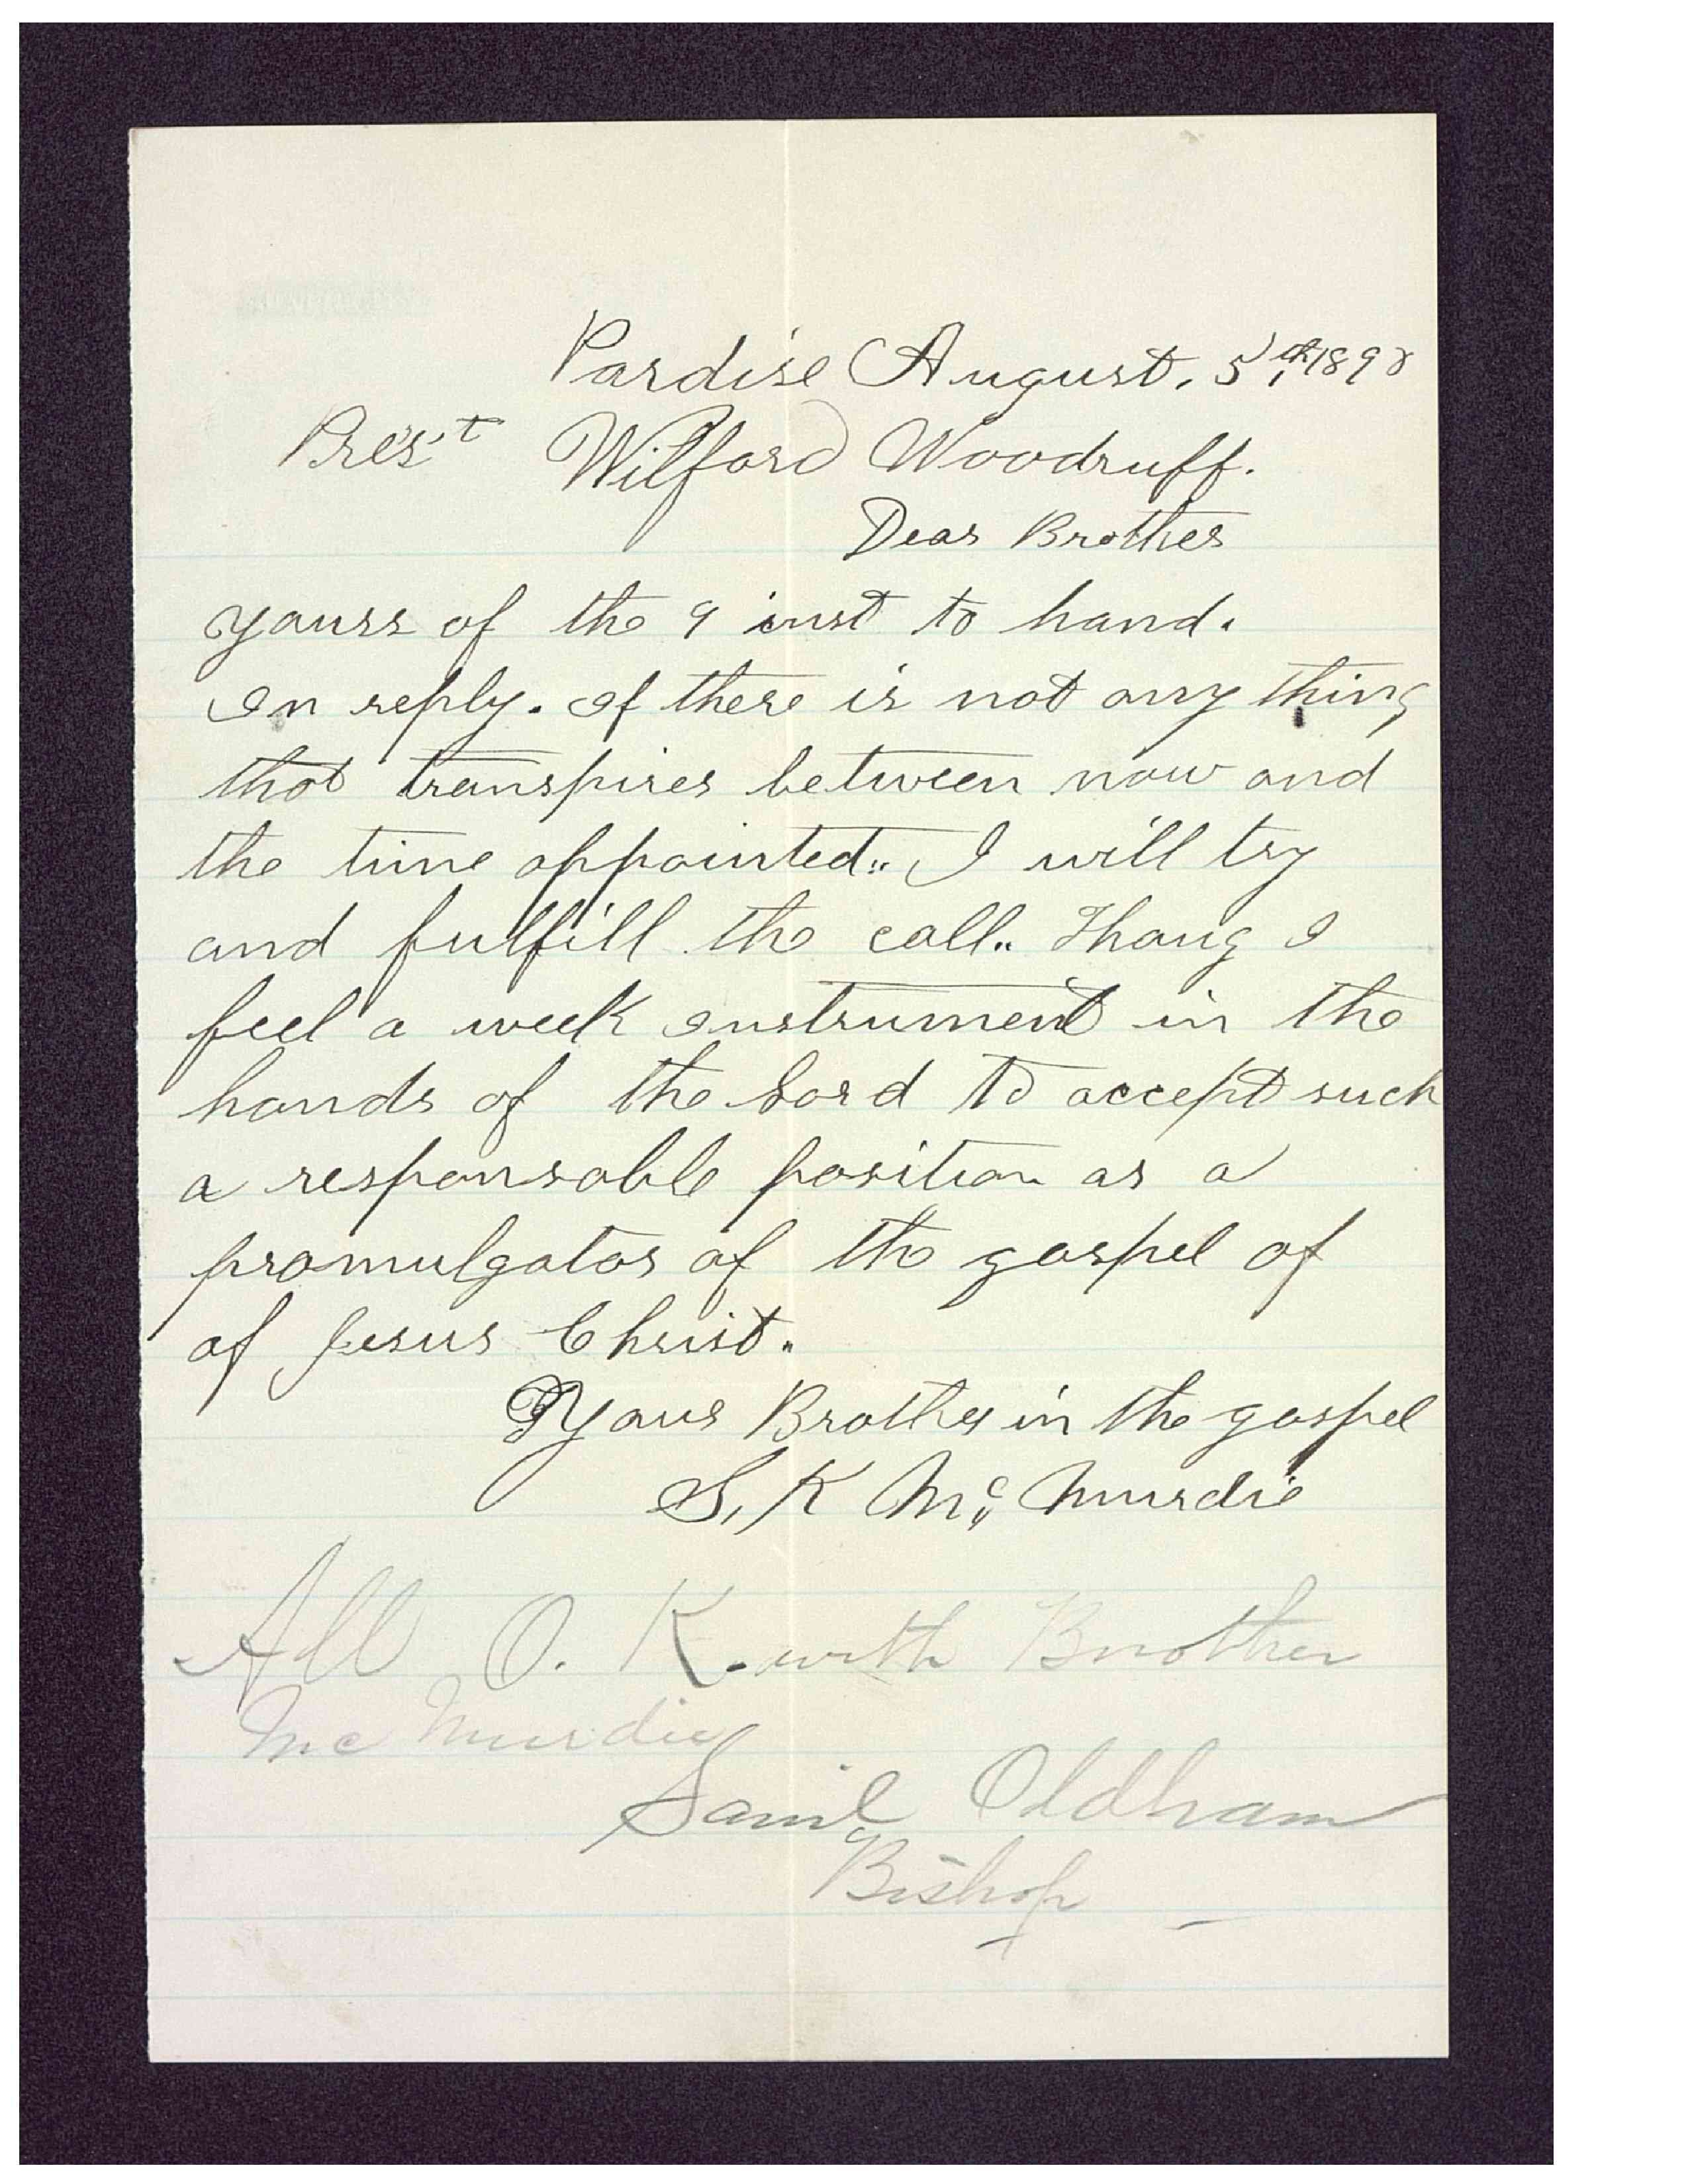 Pardise August, 5th, 1898
Prest Wilford Woodruff.
Dear Brother
yours of the 9 inst to hand.
In reply. If there is not any thing
that transpires between now and
the time appointed.. I will try
and fulfill the call.. Thoug I
feel a week Instrument in the
hands of the Lord to accept such
a responsable position as a
promulgator of the gospel of
of Jesus Christ.
Your Brother in the gospel
S, K Mc, Murdie
All O. K. with Brother
Mc Murdie
Saml Oldham
Bishop